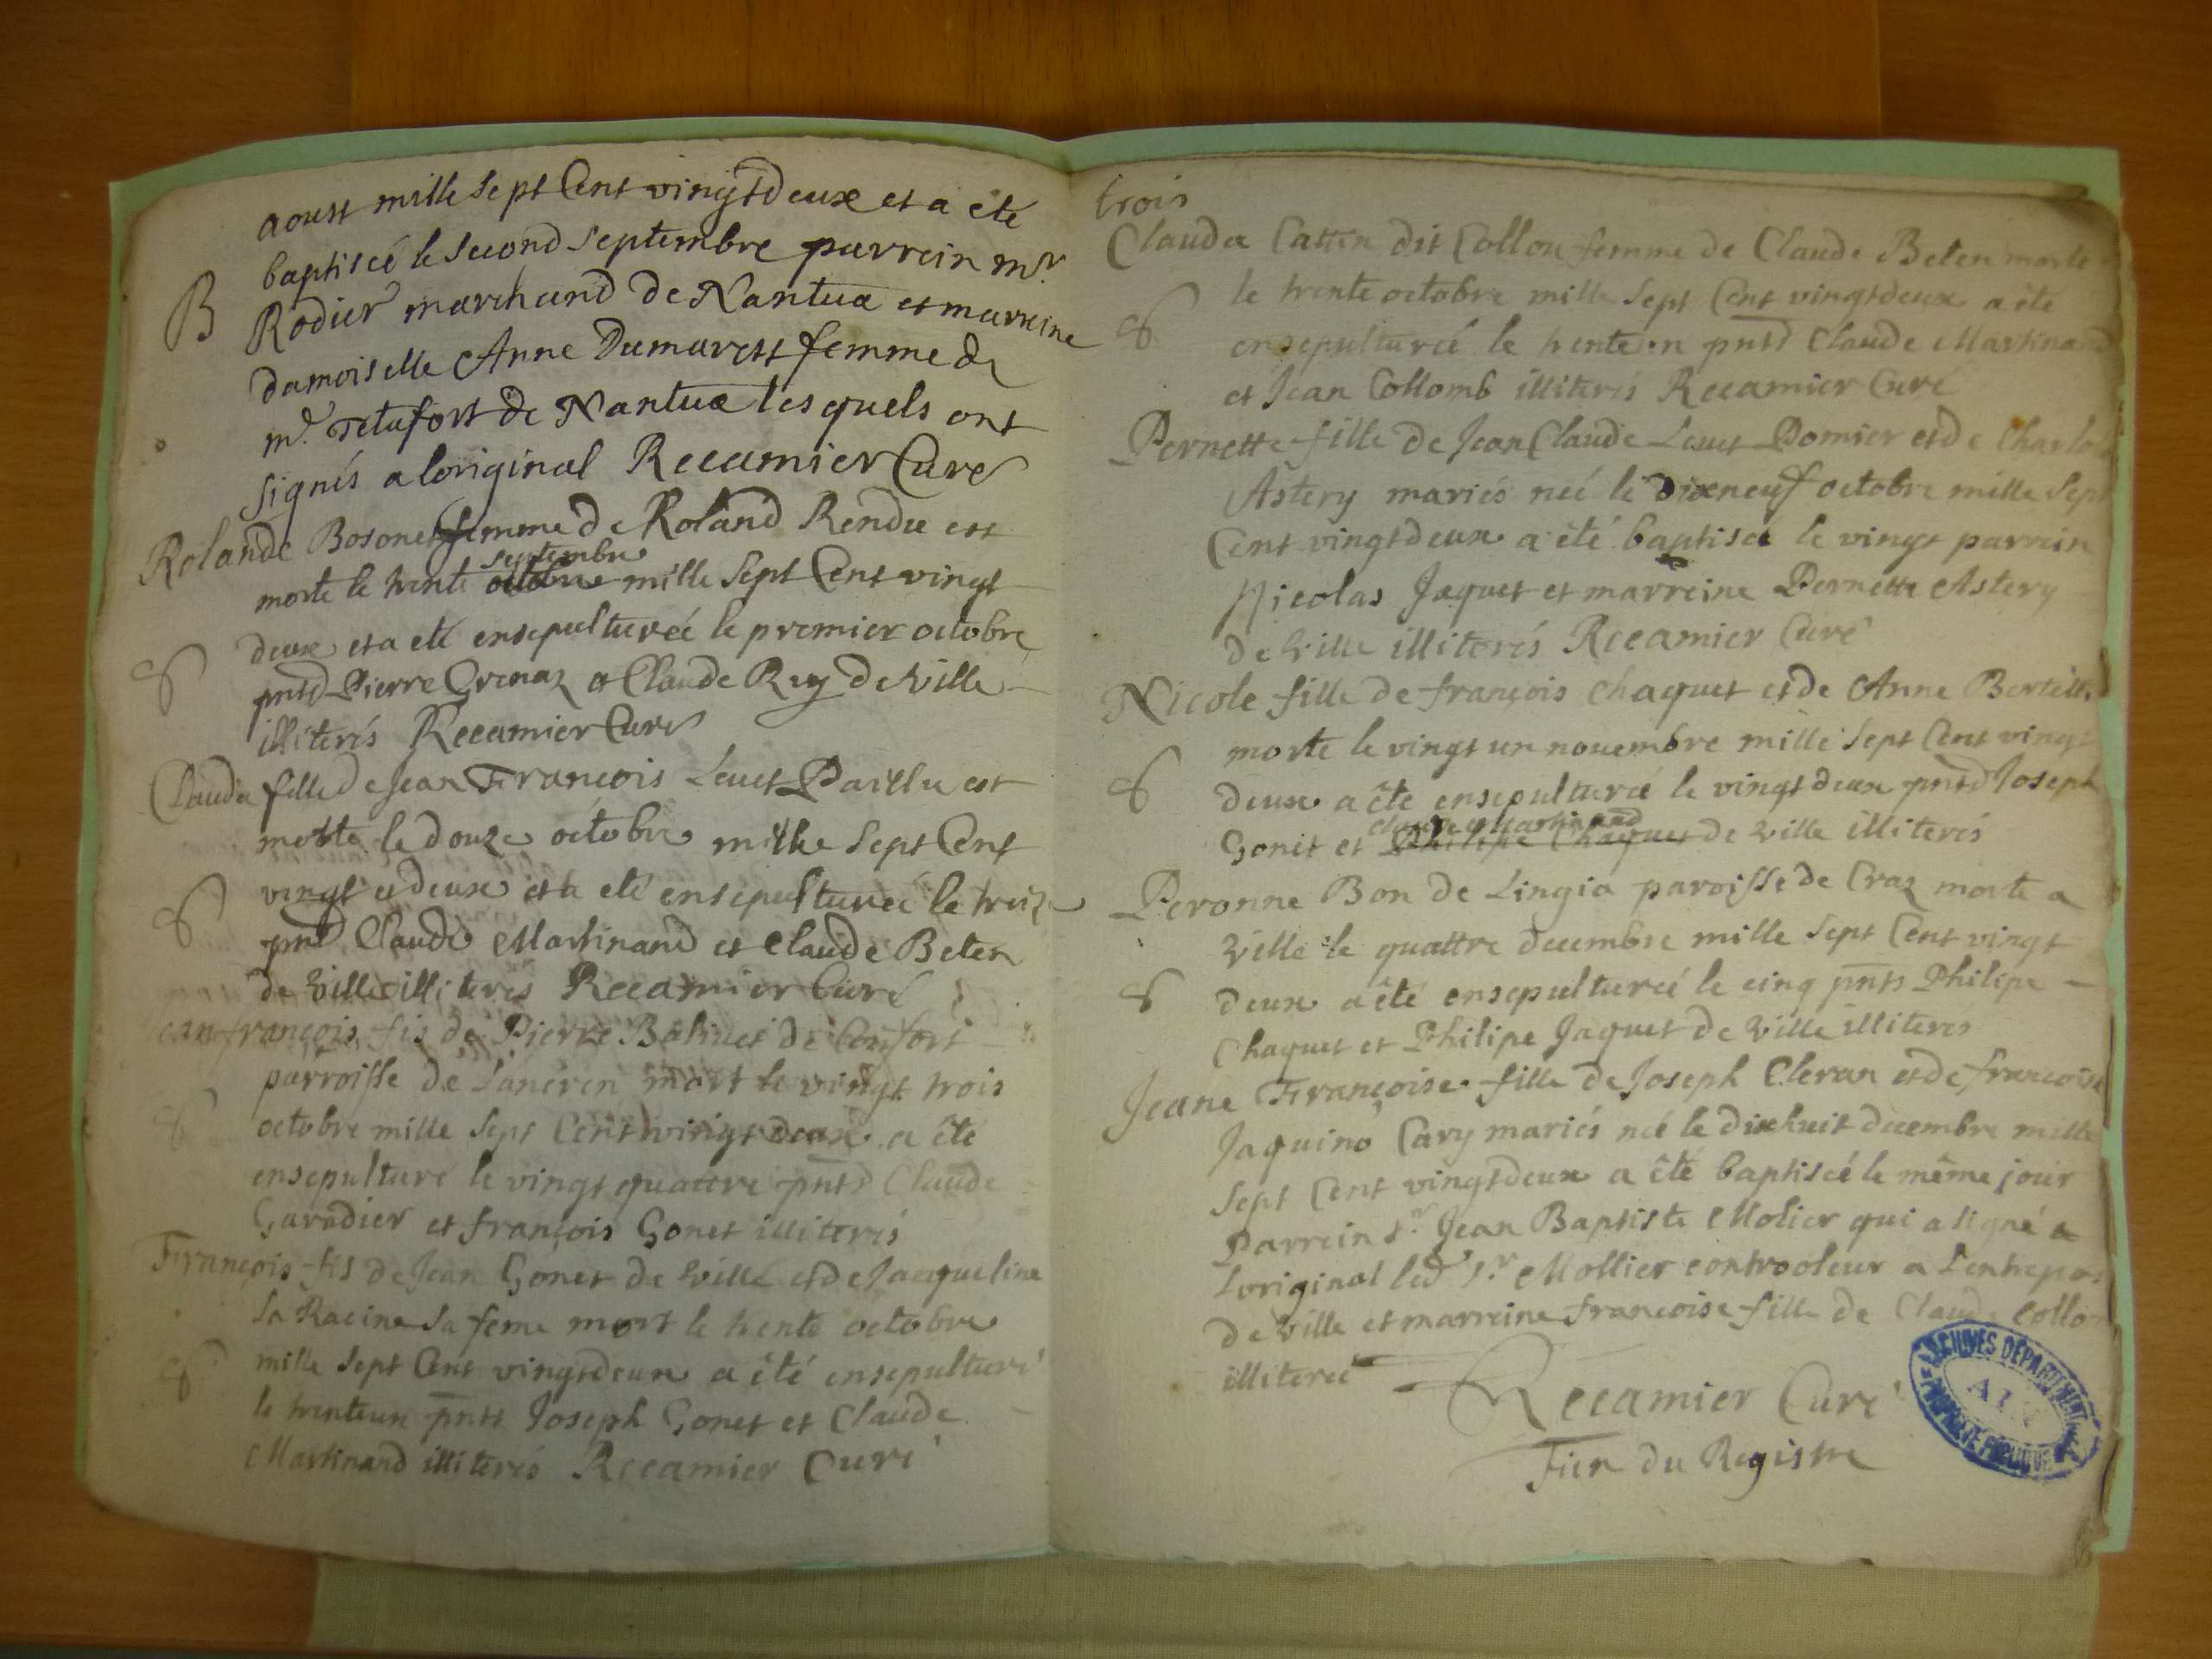 aoust mille sept Cent vingtdeux et a êté
baptiseé le second septembre parrein mr
B
Rodier marchand de Nantua et marreine
damoiselle Anne Dumarest femme de
md. Tetafort de Nantua lesquels ont
signés a loriginal Recamier Curé
Rolande Bosonet femme de Roland Rendu est
septembre
morte le trente octobre mille sept Cent vingt
deux et a eté ensepultureé le premier octobre
S
pntd Pierre Grenaz et Claude Ruy de Ville
illiterés Recamier Curé
Claudia fille de Jean François Leuet Paillu est
morte le douze octobre mille sept Cent
vingt et deux et a eté ensepultureé le treize
S
pntd Claude Martinand et Claude Beten
de Ville illiterés Recamier Curé
ean françois fis de Pierre Balivet de Confort
parroisse de Lancren mort le vingt trois
S
octobre mille sept Cent vingt deux a êté
ensepulturé le vingt quattre pntd Claude
Garadier et françois Gonet illiterés
François fis de Jean Gonet de Ville et de Jacqueline
la Racine sa feme mort le trente octobre
S
mille sept Cent vingtdeux a êté ensepulturé
le trenteun pnts Joseph Gonet et Claude
Martinand illiterés Recamier Curé
trois
Claudia Catten dit Collon femme de Claude Beten morte
le trente octobre mille sept Cent vingtdeux a êté
S
ensepultureé le trenteun pntd Claude Martinand
et Jean Collomb illiterés Recamier Curé
Pernette fille de Jean Claude Leuet Domier et de Charlo
Astery mariés neé le dixneuf octobre mille sept
Cent vingtdeux a êté baptiseé le vingt parrein
Nicolas Jaquet et marreine Pernette Astery
de Ville illiterés Recamier Curé
Nicole fille de françois Chaquet et de Anne Berteill
morte le vingt un nouembre mille sept Cent vingt
S
deux a êté ensepultureé le vingt deux pntd Joseph
Claude Martinand
Gonet et Philipe Chaquet de Ville illiterés
Peronne Bon de Lingia paroisse de Craz morte a
Ville le quattre decembre mille sept Cent vingt
S
deux a êté ensepultureé le cinq pnts Philipe
Chaquet et Philipe Jaquet de Ville illiterés
Jeane Françoise fille de Joseph Cleran et de françoise
Jaquino Cary mariés neé le dixhuit decembre mille
sept Cent vingtdeux a êté baptiseé le même jour
Parrein sr. Jean Baptiste Molier qui a signé a
Loriginal led sr Mollier controoleur a Lentrepos
de Ville et marreine françoise fille de Claude Collon
illitereé
Recamier Curé
Fien du Registre
ARCHIVES DEPARTEMENTALES
AIN
PROPRIETE PUBLIQUE